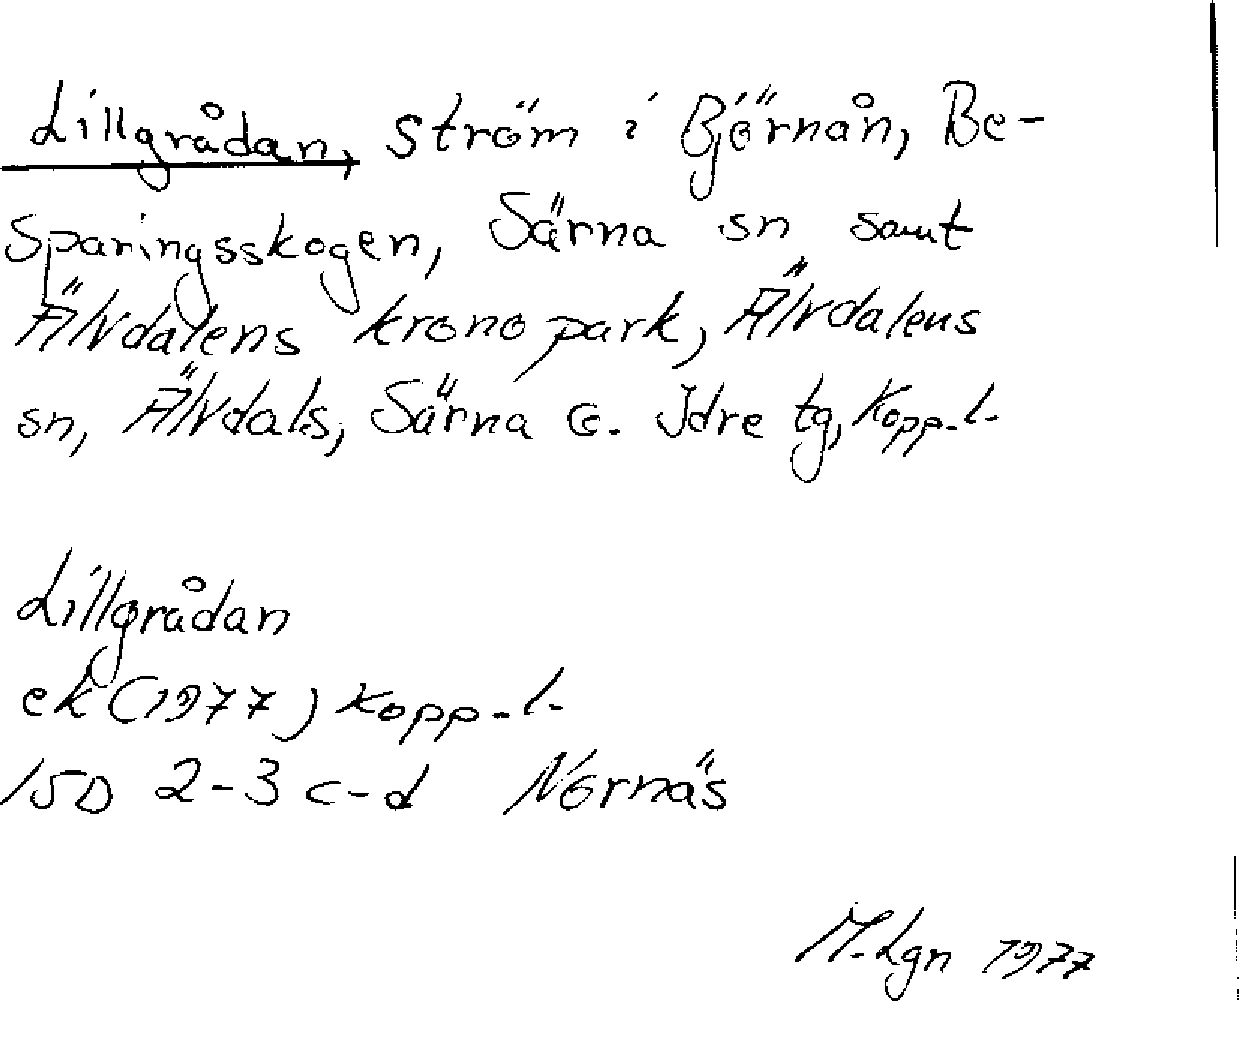 Lillgrådan, ström i Björnån, Be-
sparingsskogen, Särna sn samt
Älvdalens kronopark, Älvdalens
sn, Älvdals, Särna o. Idre tg, Kopp. l.
Lillgrådan
ek (1977) Kopp. l.
15D 2-3 c-d Nornäs
M. Lgn 1977